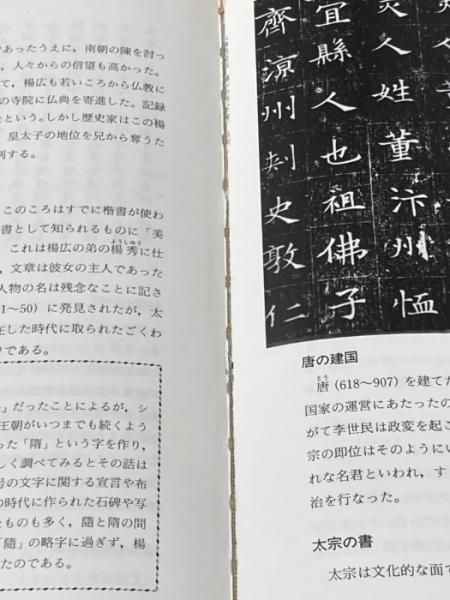 であったうえに，南朝の陳を討っ
，人々からの信望も高かった。
て，楊広も若いころから仏教に
の寺院に仏典を寄進した。記録
という。しかし歴史家はこの楊
皇太子の地位を兄から奪うた
判する。
このころはすでに楷書が使わ
書として知られるものに「美
これは楊広の弟の楊秀に仕
ようしゅう
，文章は彼女の主人であった
人物の名は残念なことに記さ
1～50）に発見されたが，太
在した時代に取られたごくわ
けである。
」だったことによるが，シ
王朝がいつまでも続くよう
った「隋」という字を作り，
しく調べてみるとその話は
号の文字に関する宣言や布
の時代に作られた石碑や写
なものも多く，隨と隋の間
「隨」の略字に過ぎず，楊
たのである。
人姓董汴州恤
宜縣人也祖佛子
齊涼州刺史敦仁
唐の建国
とう
唐（618～907）を建てた
国家の運営にあたったの
がて李世民は政変を起こ
宗の即位はそのようにい
れな名君といわれ，す
治を行なった。
太宗の書
太宗は文化的な面で